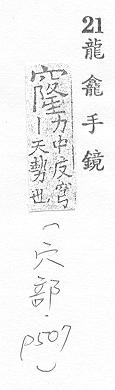 21 龍龕手鏡
窿力中反穹
丨天勢也
(穴部 p507)